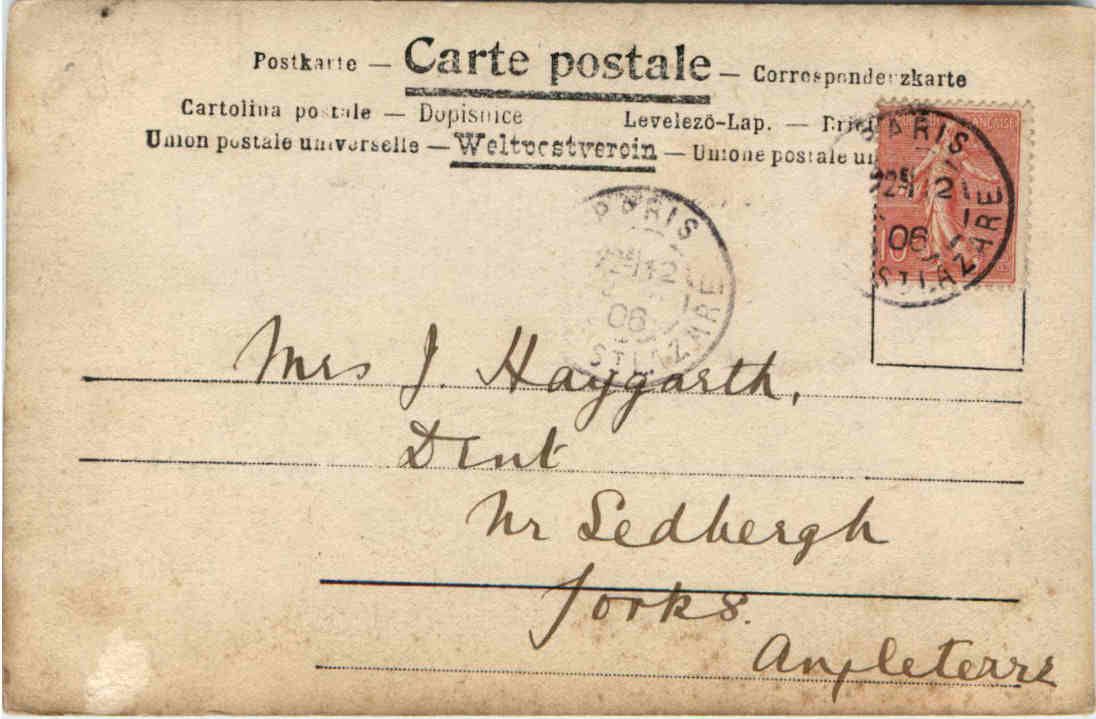 Postkarte — Carte postale — Correspondenzkarte
Cartolina postale — Dopisnice Levelezö-Lap. —
Union postale universelle — Weltpostverein — Unione postale
PARIS
12
10
06
ST LAZARE
PARIS
12
06
ST LAZARE
Mrs J. Haygarth,
Dent
Nr Sedbergh
Yorks.
Angleterre